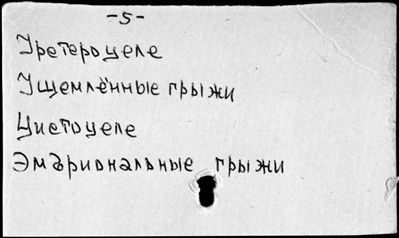 -5-
Уретероцеле
Ущемлённые грыжи
Цистоцеле
Эмбриональные грыжи